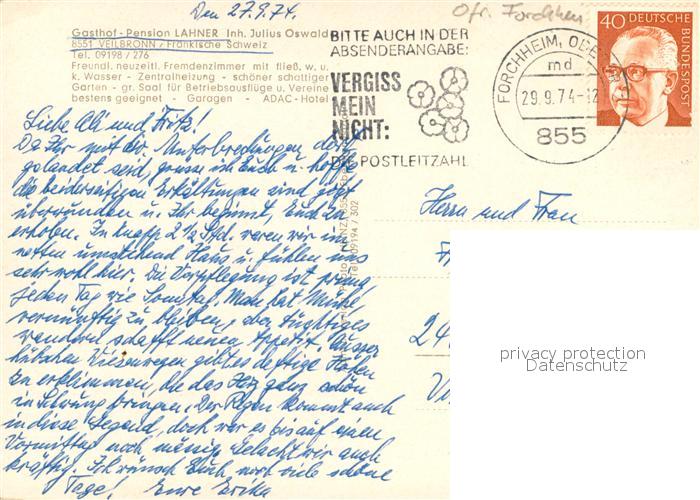 Den 27.9.74.
Ofr. Forchheim
Gasthof - Pension LAHNER Inh. Julius Oswald
8551 VEILBRONN / Fränkische Schweiz
Tel. 09198 / 276
Freundl. neuzeitl. Fremdenzimmer mit fließ. w. u.
k. Wasser - Zentralheizung - schöner schattiger
Garten - gr. Saal für Betriebsausflüge u. Vereine
bestens geeignet - Garagen - ADAC-Hotel
BITTE AUCH IN DER
ABSENDERANGABE:
VERGISS
MEIN
NICHT:
DIE POSTLEITZAHL
FORCHHEIM, OBE
md
29.9.74-12
855
40 DEUTSCHE
BUNDESPOST
Liebe Ali und Fritz!
Da Ihr mit der Unterbrechung dort
gelandet seid, grüsse ich Euch u. hoffe
die beiderseitigen Erkältungen sind jetzt
überwunden u. Ihr beginnt, Euch zu
erholen. In knapp 2 1/2 Std. waren wir im
netten umstehend Haus u. fühlen uns
sehr wohl hier. Die Verpflegung ist prima
jeden Tag wie Sonntag. Man hat Mühe
vernünftig zu bleiben, aber tüchtiges
wandern schafft neuen Appetit. Ausser
hübschen Wiesenwegen gibt es deftige Höhen
zu erklimmen, die das Herz ganz schön
in Schwung bringen. Der Regen kommt auch
in diese Gegend, doch war es bis auf einen
Vormittag noch mässig. Gelacht wir auch
kräftig. Ich wünsch Euch noch viele schöne
Tage! Eure Erika
09194 / 302
Herrn und Frau
F
24
V
privacy protection
Datenschutz